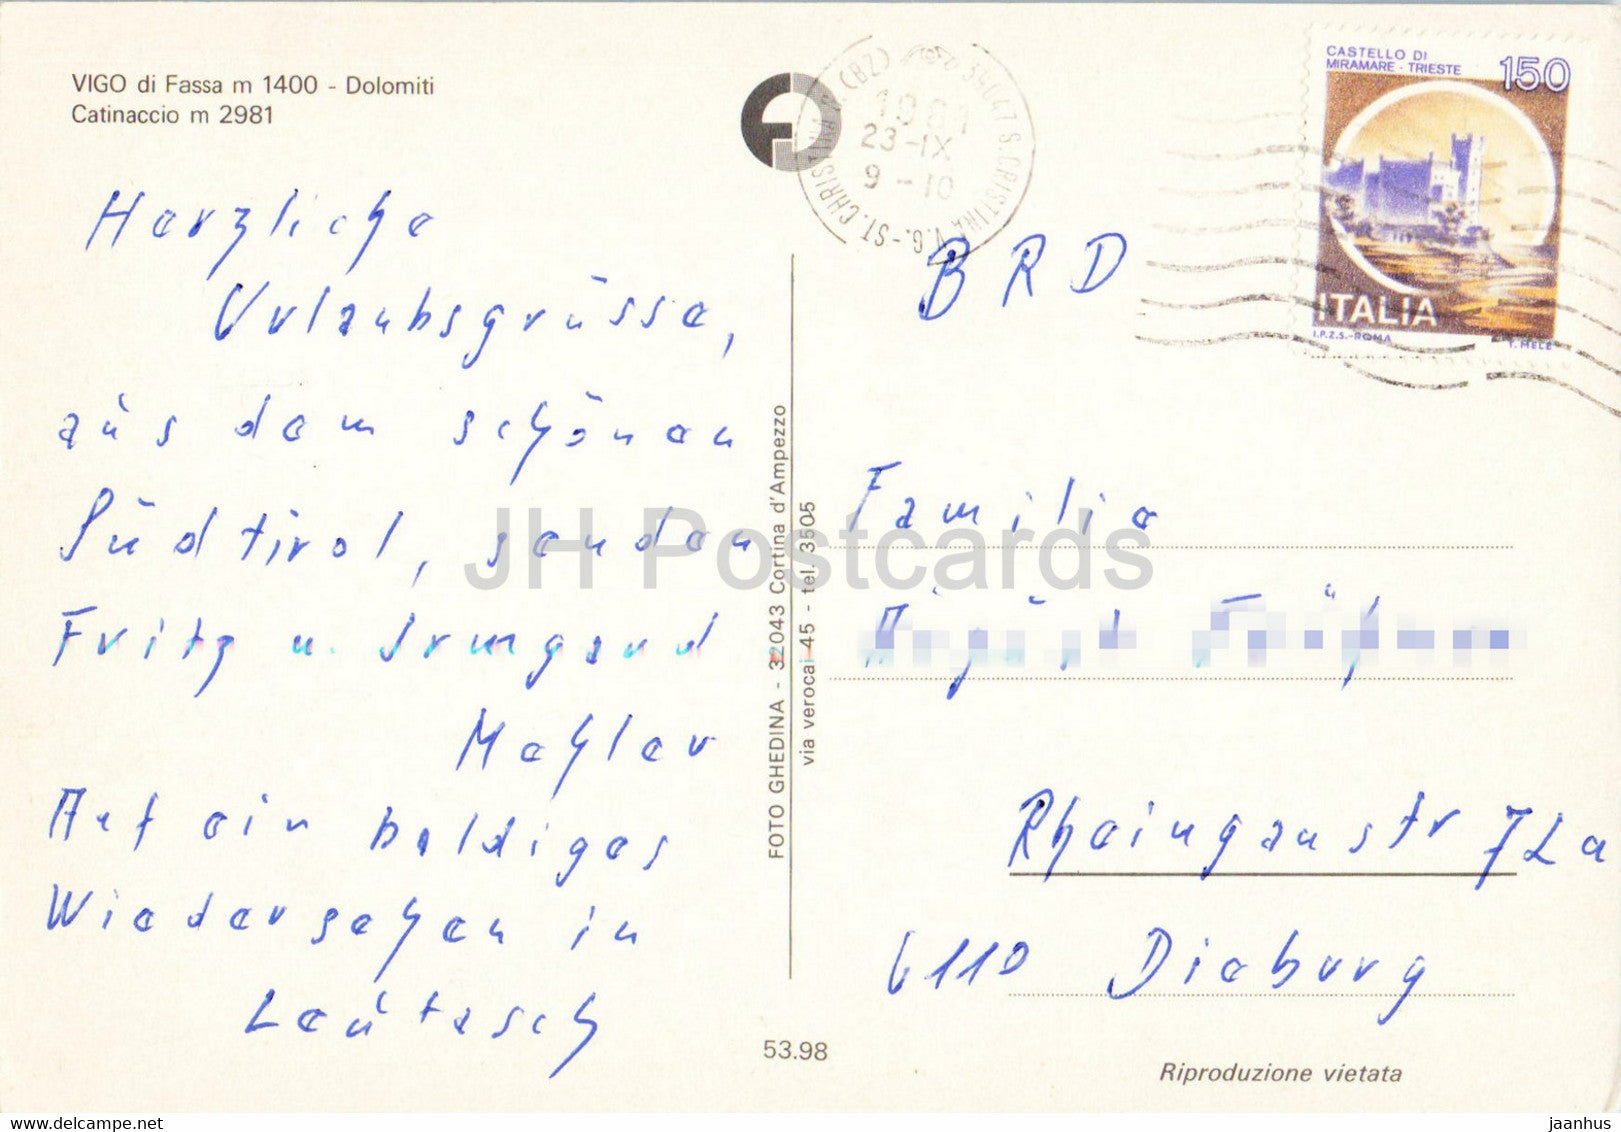 VIGO di Fassa m 1400 - Dolomiti
Catinaccio m 2981
Herzliche
Urlaubsgrüsse,
aus dem schönen
Südtirol, senden
Fritz u. Irmgard
Mehler
Auf ein baldiges
Wiedersehen in
Leutasch
53.98
FOTO GHEDINA - 32043 Cortina d'Ampezzo
via verocai 45 - tel. 3505
39047 S. CRISTINA V.G. - ST. CHRIST (BZ)
23-IX
9-10
CASTELLO DI
MIRAMARE - TRIESTE
150
ITALIA
I.P.Z.S.-ROMA
T. MELE
BRD
Familie
Rheingaustr 72a
6110 Dieburg
Riproduzione vietata
JH Postcards
www.delcampe.net
jaanhus